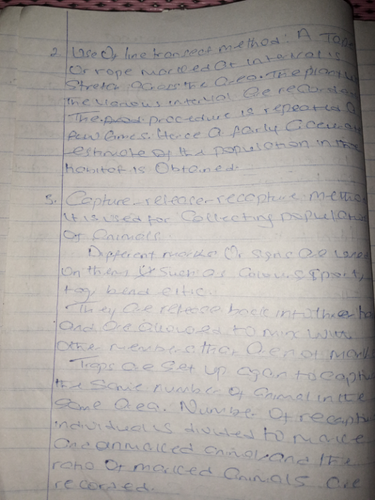 2. Use of line transect method: A Tape
Or rope marked at interval is
Stretch across the area. The plant
the various interval are recorded
The procedure is repeated a
few times. Hence a fairly accurate
estimate of the population in the
habitat is Obtained.
3. Capture-release-recapture method
It is used for Collecting population
of Animals.
Different marks Or signs are used
on them such as colour spray
tag band etc.
They are release back into their ha
and are allowed to mix with
other members that are not marked
Traps are set up again to capture
the same number of animal in the
same area. Number of recaptu
individual is divided to marke
and unmarked animal and the
ratio of marked animals are
recorded.